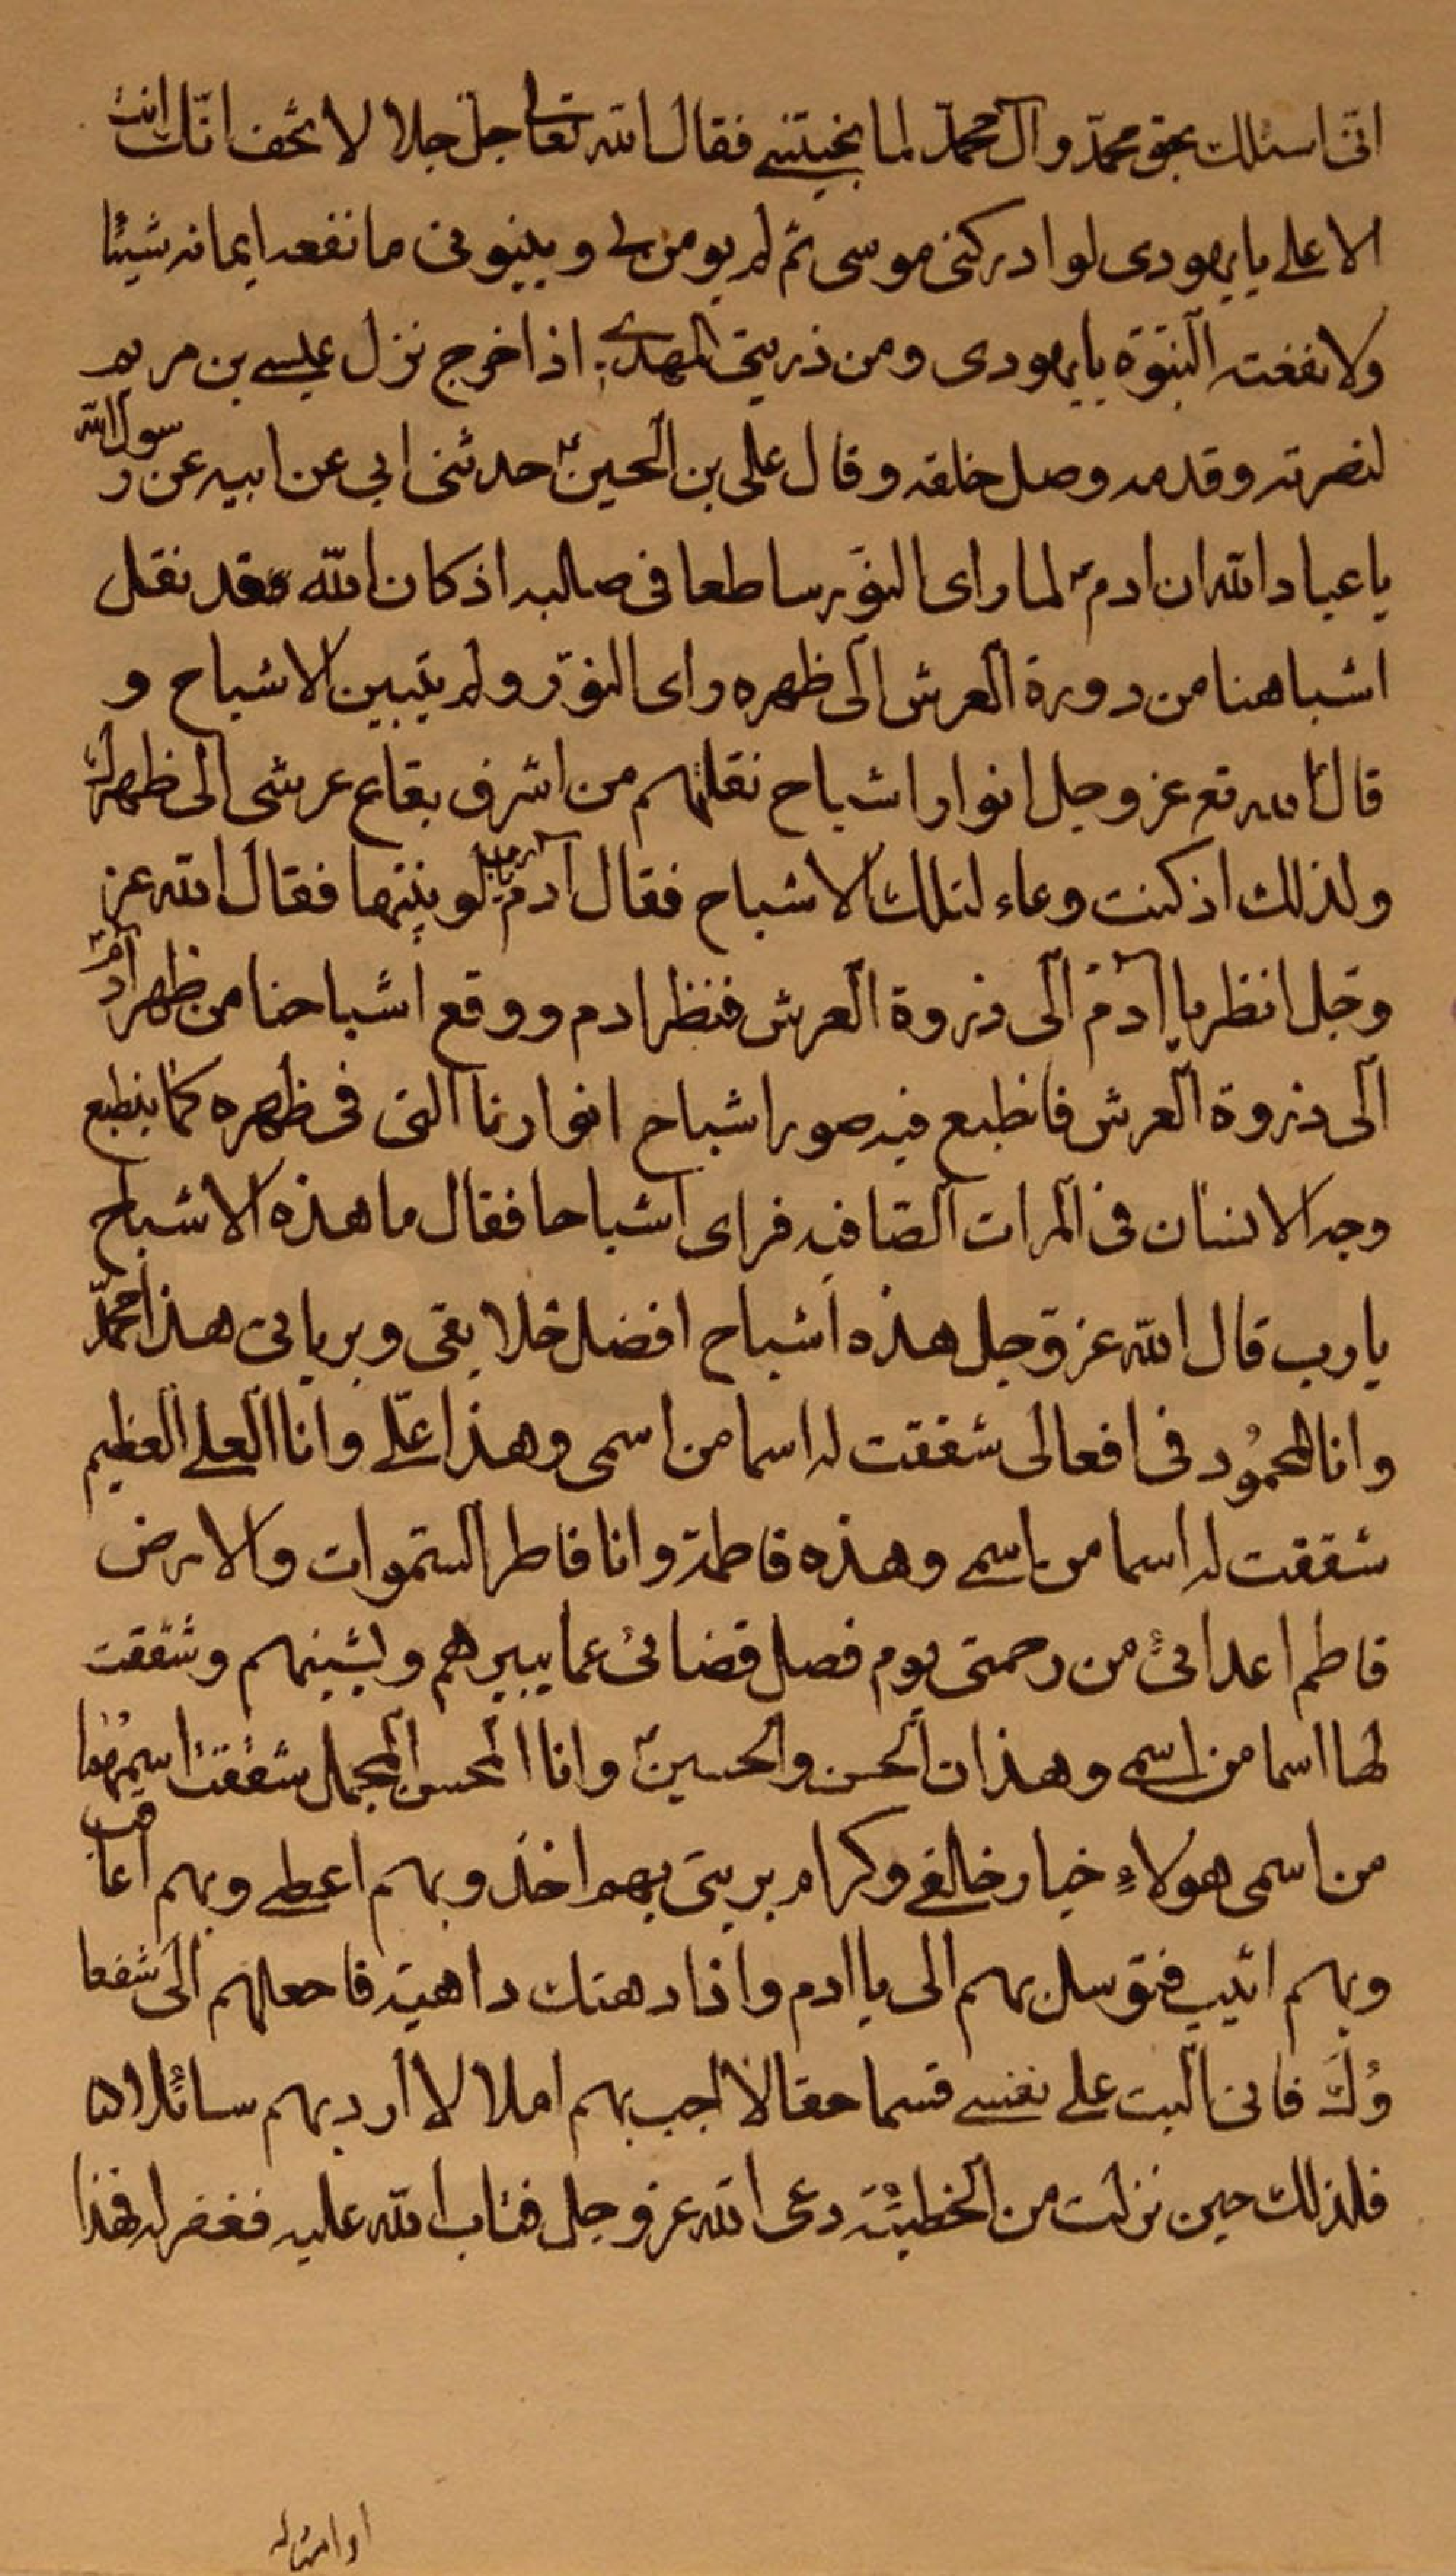 انی اسئلك بحق محمد وآل محمد لما نجیتنی فقال الله تعالی جل جلا لا تخف انك انت
الاعلی یا یهودی لو ادرکنی موسی ثم لم یومن لی وبنبوتی ما نفعه ایمانه شیئا
ولا نفعته النبوة یا یهودی ومن ذریتی المهدی اذا خرج نزل عیسی بن مریم
لنصرته وقدمه وصل خلفه وقال علی بن الحسین ع حدثنی ابی عن ابیه عن رسول الله
یا عباد الله ان ادم لما رای النور ساطعا فی صلبه اذ کان الله قد نقل
اشباهنا من دورة العرش الی ظهره رای النور ولم یتبین الاشباح و
قال الله تع عز وجل انوار اشباح نقلتهم من اشرف بقاع عرشی الی ظهرك
ولذلك اذ کنت وعاء لتلك الاشباح فقال آدم یا رب لو بینتها فقال الله عز
وجل انظر یا آدم الی ذروة العرش فنظر ادم ووقع اشباحنا من ظهر آدم
الی ذروة العرش فانطبع فیه صور اشباح انوارنا التی فی ظهره کما ینطبع
وجه الانسان فی المرات الصافیه فرای اشباحا فقال ما هذه الاشباح
یا رب قال الله عز وجل هذه اشباح افضل خلایقی وبریاتی هذا محمد
وانا المحمود فی افعالی شققت له اسما من اسمی وهذا علی وانا العلی العظیم
شققت له اسما من اسمی وهذه فاطمة وانا فاطر السموات والارض
فاطم اعدائی من رحمتی یوم فصل قضائی عما یبیرهم ویشینهم وشققت
لها اسما من اسمی وهذان الحسن والحسین وانا المحسن المجمل شققت اسمیهما
من اسمی هولاء خیار خلقی وکرام بریتی بهم اخذ وبهم اعطی وبهم اعاقب
وبهم اثیب فتوسل بهم الی یا ادم واذا دهتك داهیة فاجعلهم الی شفعا
ؤك فانی آلیت علی نفسی قسما حقا لا اجیب بهم املا لا ارد بهم سائلا
فلذلك حین نزلت من الخطیئة دعی الله عز وجل فتاب الله علیه فغفر له فهذا